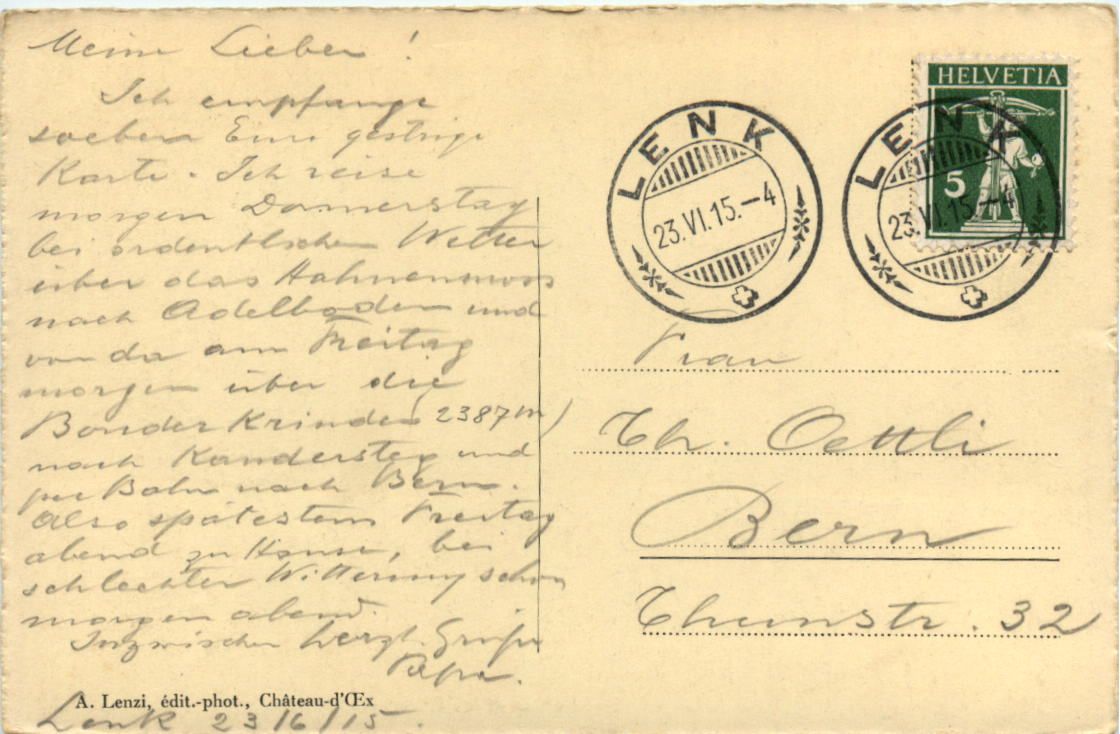 Meine Lieben!
Ich empfange
soeben Eure gestrige
Karte. Ich reise
morgen Donnerstag
bei ordentlichem Wetter
über das Hahnenmoos
nach Adelboden und
von da am Freitag
morgen über die
Bonder Krinden 2387m)
nach Kandersteg und
per Bahn nach Bern.
Also spätestens Freitag
abend zu Hause, bei
schlechter Witterung schon
morgen abend.
Inzwischen herzl. Grüsse
Papa.
A. Lenzi, édit.-phot., Château-d'Œx
Lenk 23/6/15.
HELVETIA
5
LENK
23.VI.15.-4
LENK
23.VI.15.-4
Frau
Th. Oettli
Bern
Thunstr. 32